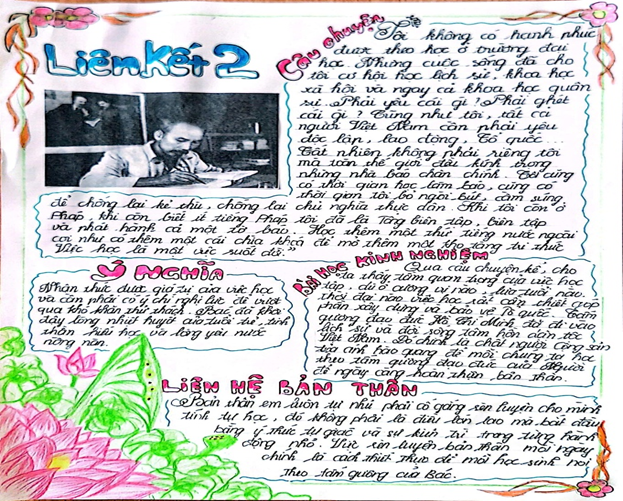 Liên kết 2
Câu chuyện
"Tôi không có hạnh phúc
được theo học ở trường đại
học. Nhưng cuộc sống đã cho
tôi cơ hội học lịch sử, khoa học
xã hội và ngay cả khoa học quân
sự. Phải yêu cái gì? Phải ghét
cái gì? Cũng như tôi, tất cả
người Việt Nam cần phải yêu
độc lập, lao động, Tổ quốc...
Tất nhiên không phải riêng tôi
mà toàn thế giới đều kính trọng
những nhà báo chân chính. Tôi cũng
có thời gian học làm báo, cũng có
thời gian tôi bỏ ngòi bút, cầm súng
để chống lại kẻ thù, chống lại chủ nghĩa thực dân. Khi tôi còn ở
Pháp, khi còn biết ít tiếng Pháp tôi đã là Tổng biên tập, biên tập
và phát hành cả một tờ báo. Học thêm một thứ tiếng nước ngoài
coi như có thêm một cái chìa khoá để mở thêm một kho tàng tri thức
Việc học là một việc suốt đời."
Ý NGHĨA
Nhận thức được giá trị của việc học
và cần phải có ý chí nghị lực để vượt
qua khó khăn thử thách. Bác đã khơi
dậy lòng nhiệt huyết của tuổi trẻ, tinh
thần hiếu học và lòng yêu nước
nồng nàn.
BÀI HỌC KINH NGHIỆM
Qua câu chuyện kể, cho
ta thấy tầm quan trọng của việc học
tập, dù ở cương vị nào, lứa tuổi nào,
thời đại nào việc học rất cần thiết góp
phần xây dựng và bảo vệ Tổ quốc. Tấm
gương đạo đức Hồ Chí Minh đã đi vào
lịch sử và đời sống tâm hồn dân tộc
Việt Nam. Đó chính là chất người cộng sản
trẻ anh hào giang để mỗi chúng ta học
theo tấm gương đạo đức của Người
để ngày càng hoàn thiện bản thân.
LIÊN HỆ BẢN THÂN
Bản thân em luôn tự nhủ phải cố gắng rèn luyện cho mình
tính tự học, đó không phải là điều lớn lao mà bắt đầu
bằng ý thức tự giác và sự kiên trì trong từng hành
động nhỏ. Việc rèn luyện bản thân mỗi ngày
chính là cách thiết thực để mỗi học sinh noi
theo tấm gương của Bác.